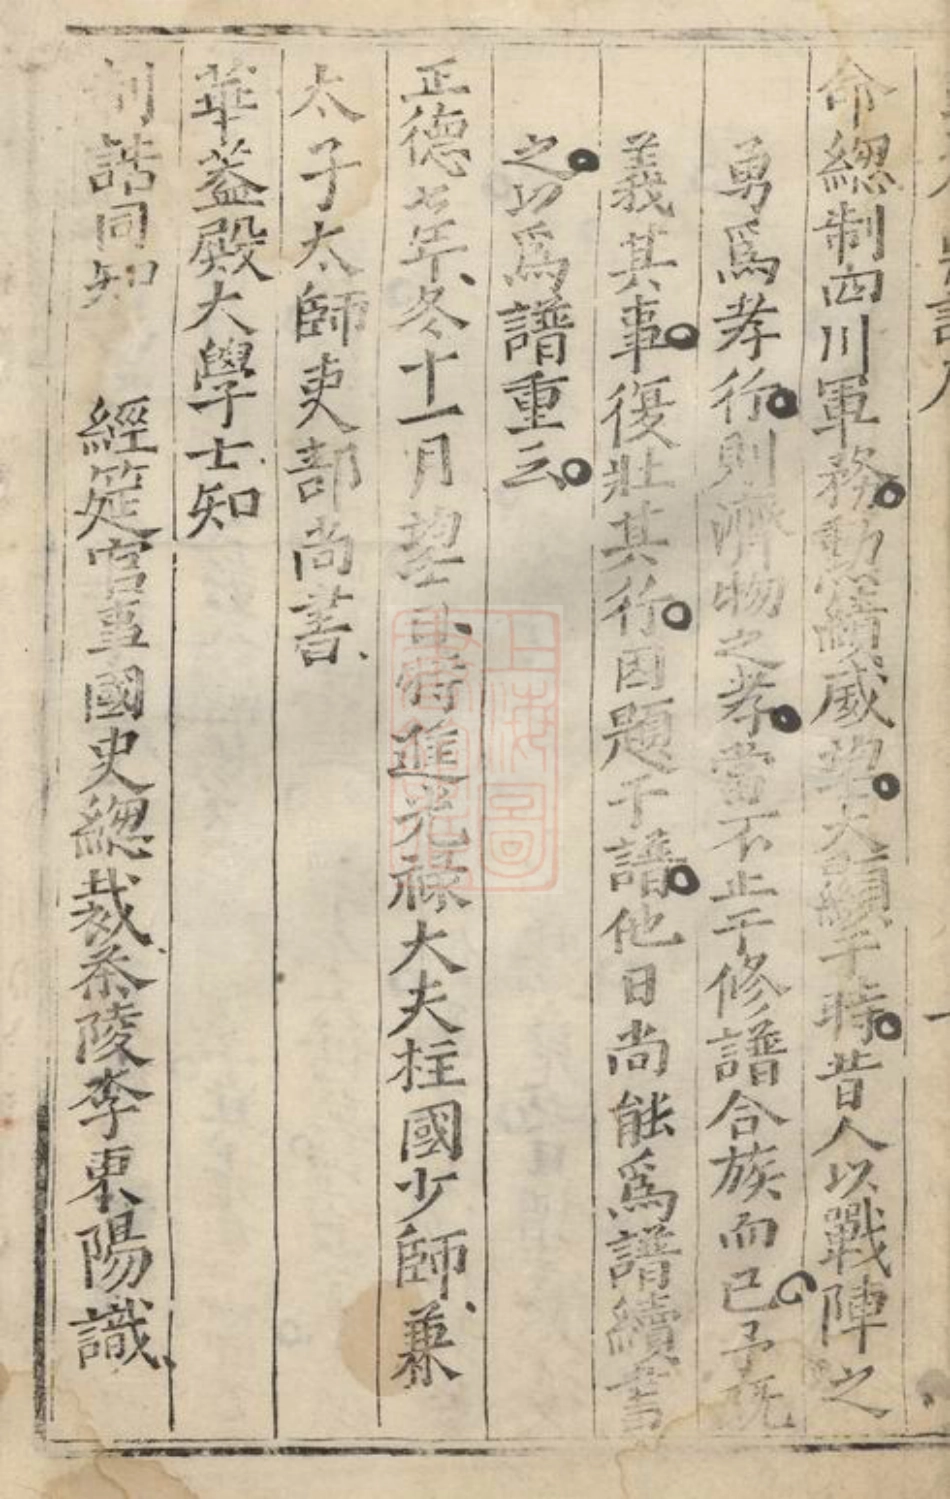 命總制四川軍務勳績威望大顯于時昔人以戰陣之
勇爲孝行則濟物之孝當不止于修譜合族而已予既
義其事復壯其行因題于譜他日尚能爲譜續書
之以爲譜重云
正德七年冬十一月望日特進光祿大夫柱國少師兼
太子太師吏部尚書
華葢殿大學士知
制誥同知 經筵官事國史總裁茶陵李東陽識